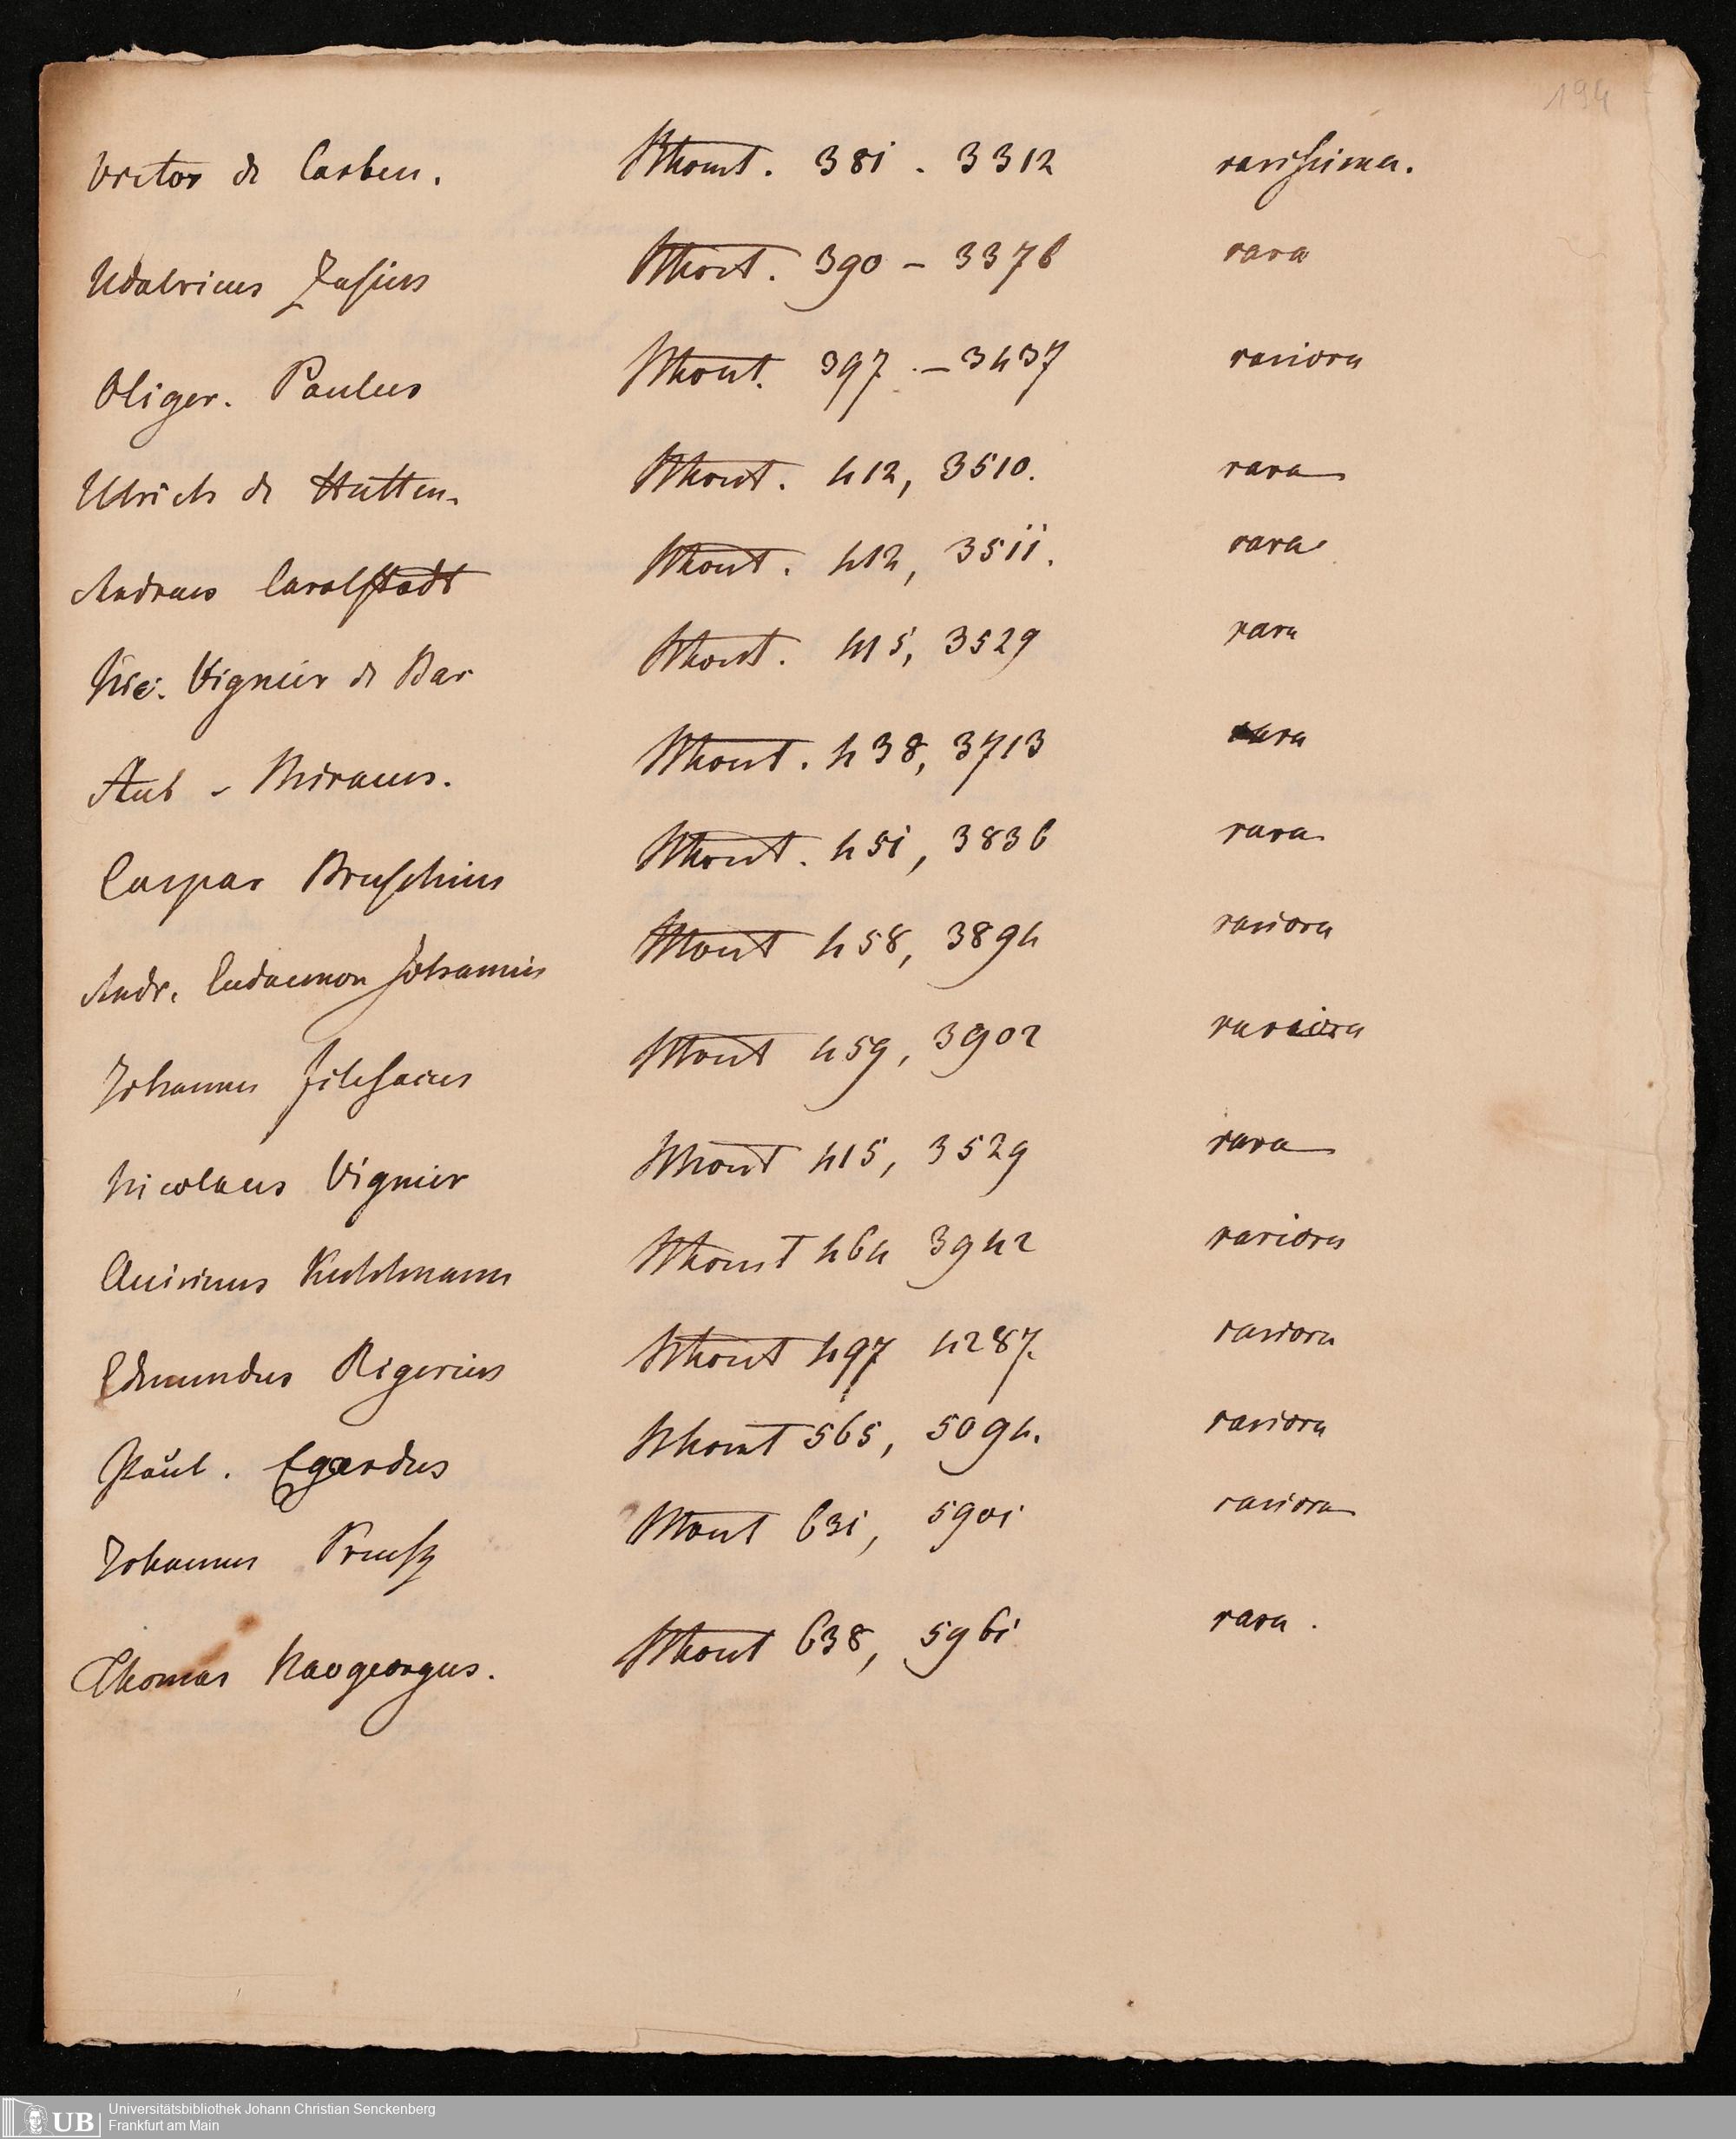 194
Victor de Carben. Mont. 381 . 3312 rarissima.
Udalricus Zasius Mont. 390 – 3376 rara
Oliger. Paulus Mont. 397 . – 3437 rariora
Ulrich de Hutten. Mont. 412, 3510. rara
Andreas Carolstadt Mont. 412, 3511. rara
Nic. Vignier de Bar Mont. 415, 3529 rara
Aub - Miraeus. Mont. 438, 3713 rara
Caspar Bruschius Mont. 451, 3836 rara
Andr. Eudaemon Johannis Mont 458, 3894 rariora
Johannes Filesacus Mont 459, 3902 rariora
Nicolaus Vignier Mont 415, 3529 rara
Quirinus Kuhlmann Mont 464 3942 rariora
Edmundus Rigerius Mont 497 4287. rariora
Paul. Egardus Mont 565, 5094. rariora
Johannes Mont 631, 5901 rariora
Thomas Naogeorgus. Mont 638, 5961 rara .
UB Universitätsbibliothek Johann Christian Senckenberg
Frankfurt am Main